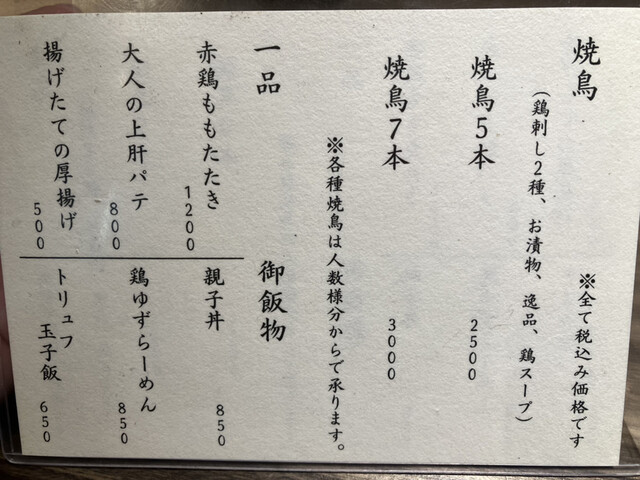 焼鳥
※全て税込み価格です
(鶏刺し2種、お漬物、逸品、鶏スープ)
焼鳥5本 2500
焼鳥7本 3000
※各種焼鳥は人数様分からで承ります。
一品
赤鶏ももたたき 1200
大人の上肝パテ 800
揚げたての厚揚げ 500
御飯物
親子丼 850
鶏ゆずらーめん 850
トリュフ玉子飯 650